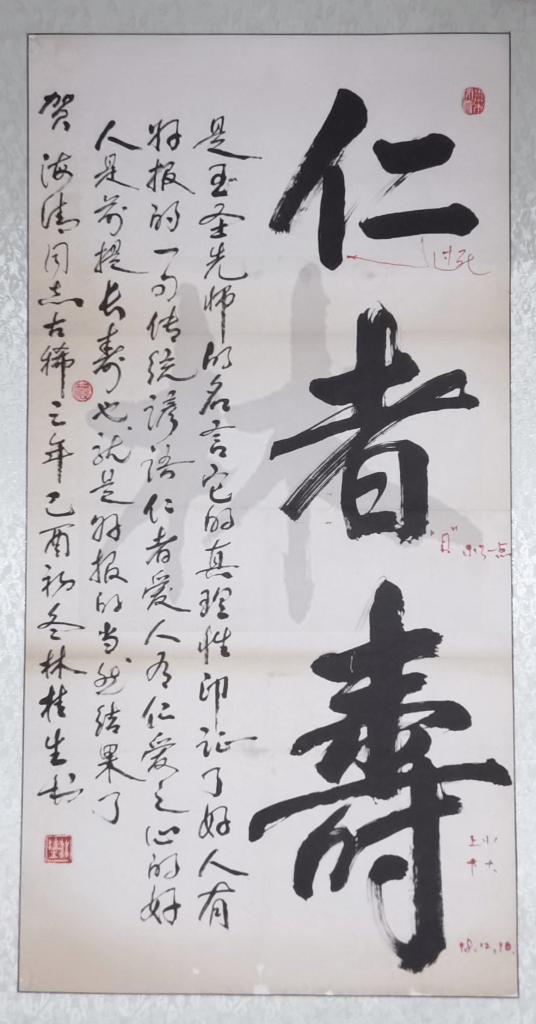 仁者壽
是至圣先师的名言它的真理性印证了好人有
好报的一句传统谚语仁者爱人有仁爱之心的好
人是前提长寿也就是好报的当然结果了
贺海清同志古稀之年己酉初冬林桂生书
林
过
"日" 一点
上小
下大
98.12.10.